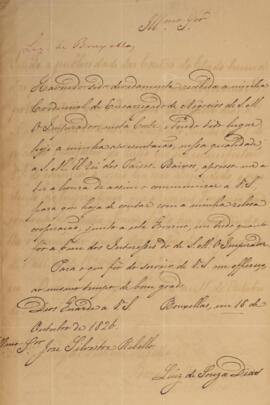 Illmo. Snr.
Leg. de Bruxellas
Havendo sido devidamente recebida a minha
Credencial de Encarregado de Negocios de S. M.
O Imperador, nesta Corte, e tendo tido lugar
hoje a minha apresentação, nessa qualidade,
a S. M. El Rei dos Paizes Baixos, apresso-me a
ter a honra de assim o communicar a V. S.,
para que haja de contar com a minha zelosa
cooperação, junto a este Governo, em tudo quanto
for a bem dos Interesses de S. M. O Imperador.
Para o que for do serviço de V. S. me offereço,
ao mesmo tempo, de bom grado.
Deos Guarde a V. S. Bruxellas, em 16 de
Outubro de 1826.
Illmo. Snr. José Silvestre Rebello
Luiz de Souza Dias